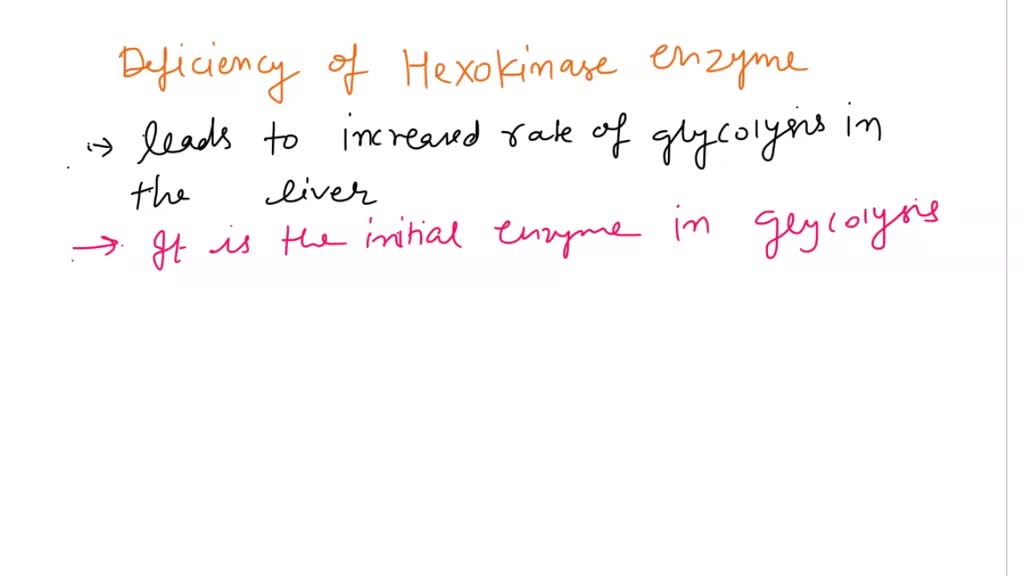 Deficiency of Hexokinase enzyme
→ leads to increased rate of glycolysis in
the liver
→ It is the initial enzyme in glycolysis